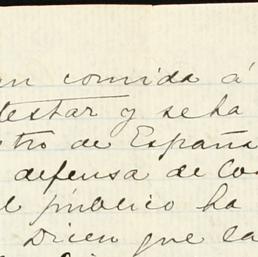 un comida á
testar y se ha
tro de España
defensa de Co
l público ha
Dicen que la